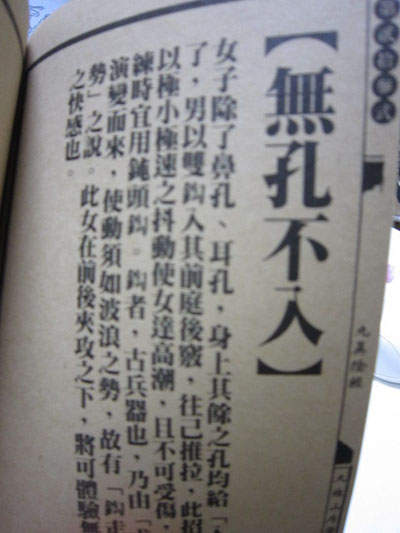 【無孔不入】
女子除了鼻孔、耳孔，身上其餘之孔均給「
了，男以雙鈎入其前庭後竅，往己推拉，此招
以極小極速之抖動使女達高潮，且不可受傷，
練時宜用鈍頭鈎。鈎者，古兵器也，乃由「
演變而來，使動須如波浪之勢，故有「鈎走
勢」之說。此女在前後夾攻之下，將可體驗無
之快感也。
九真陰經